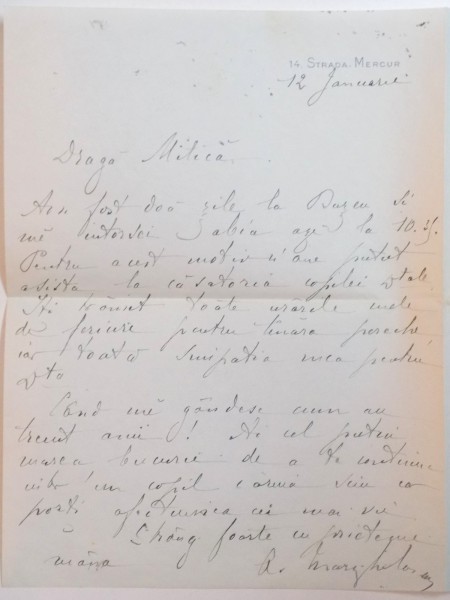 14. STRADA. MERCUR
12 Januarie
Dragă Milică
Am fost doă zile la Buzeu si
mĕ intorsei abia azĭ la 10.
Pentru acest motiv n'am putut
asista la căsătoria copilei dtale
Iti trămit toate urările mele
de fericire pentru tînăra pereche
iar toată simpatia mea pentru
dta
Când mĕ gândesc cum au
trecut anii! Ai cel putin
marea bucurie de a te continua
într'un copil
porți afectiunea cea mai vie
Iti strâng foarte cu prietenie
mâna
A. Marghiloman